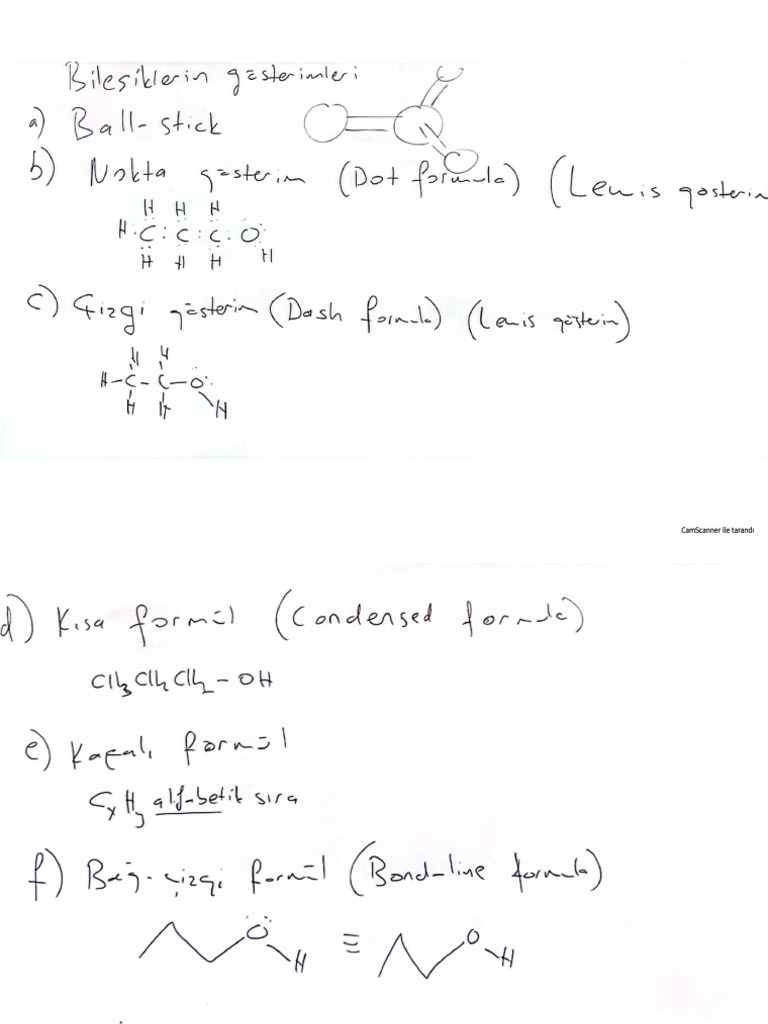 Bileşiklerin gösterimleri
a) Ball-stick
b) Nokta gösterim (Dot formula) (Lewis gösterim
H H H
H C : C : C : O
H H H H
c) Çizgi gösterim (Dash formula) (Lewis gösterim)
H H
H-C-C-O
H H H
CamScanner ile tarandı
d) Kısa formül (Condensed formula)
CH3CH2CH2-OH
e) Kapalı formül
CxHy alfabetik sıra
f) Bağ-çizgi formül (Bond-line formula)
O O
H ≡ H